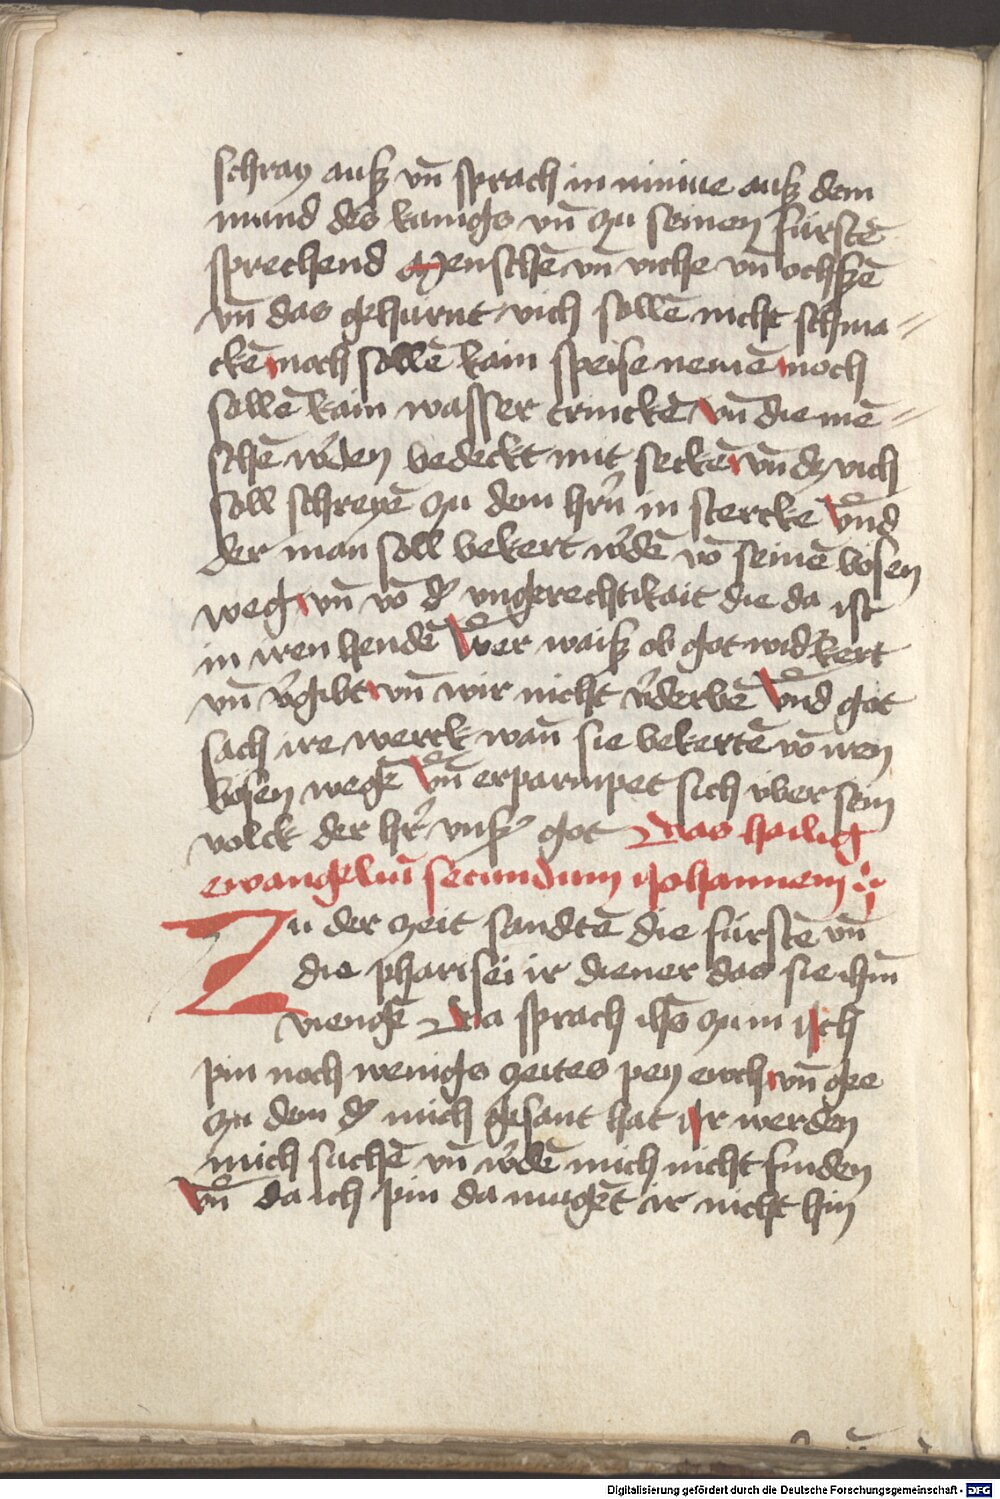 schray auß vn̄ sprach in niniue auß dem
mund des kunigs vn̄ zu seinen fürstē
sprechend Menschē vn̄ viche vn̄ ochßē
vn̄ das gehürnt vich sollē nicht schma=
ckē noch sollē kain speise nemē noch
sollē kain wasser trinckē vn̄ die mē=
schē w'den bedeckt mit seckē vn̄ dz vich
soll schreyē zu dem hr̄n in sterckē Vnd
der man soll bekert w'dē vō seinē bösen
weg vn̄ vō d' vngerechtikait die da ist
in iren hendē Wer waiß ob got wid'kert
vn̄ v'gibt vn̄ wir nicht v'derbē Vnd got
sach ire werck wan̄ sie bekertē vō iren
bösen wegē Vn̄ erparmpet sich vber sein
volck der hr̄ vnß' got Das hailig
ewangeliū secundum Johannem
Zu der zeit sandtē die fürstē vn̄
die pharisei ir diener das sie ihm̄
viengē Da sprach ihs̄ zu in Ich
pin noch wenigs zeites pey ewch vn̄ gee
zu dem d' mich gesant hat Ir werden
mich suchē vn̄ w'dē mich nicht finden
Vn̄ da ich pin da mugēt ir nicht hin
Digitalisierung gefördert durch die Deutsche Forschungsgemeinschaft - DFG